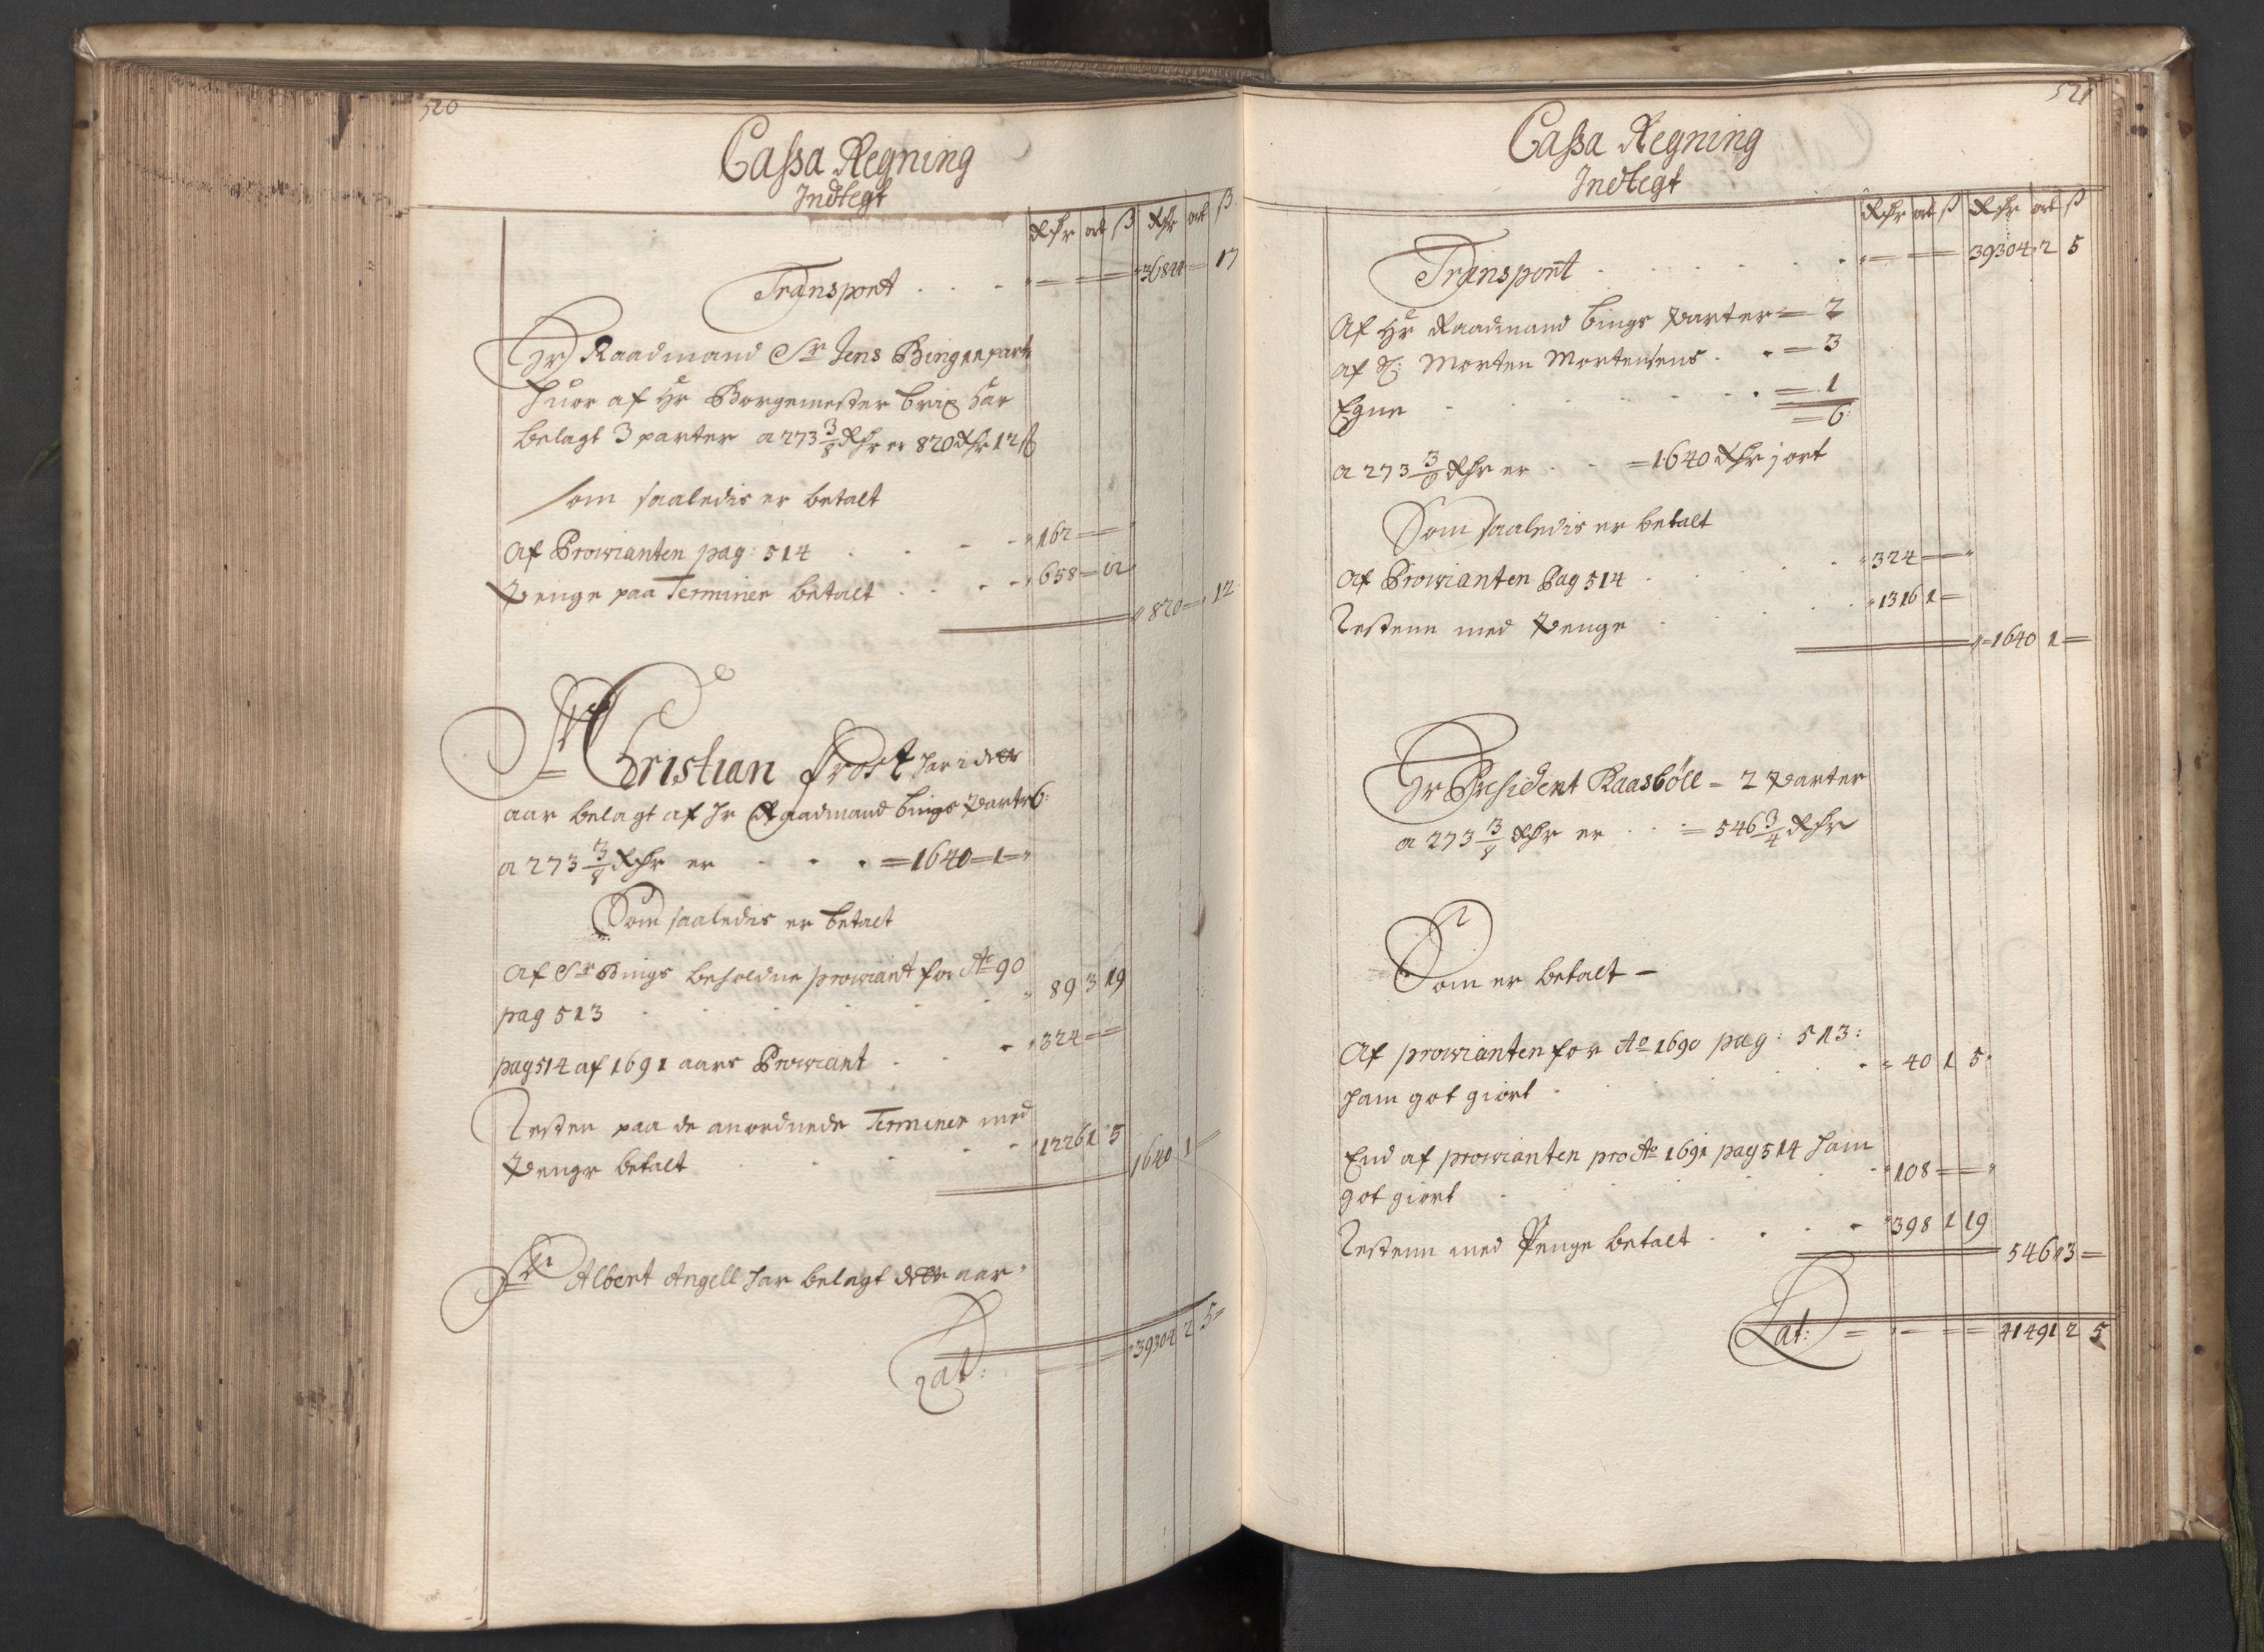 520
Cassa Regning
Indtegt
Rdr ort ß Rdr ort ß
Transport . . . 36844 — 17
Hr Raadmand Sr Jens Bing parter
huor af Hr Borgemester Brix har
belagt 3 parter a 273 3/8 Rdr er 820 Rdr 12 ß
som saaledis er betalt
Af Prowianten pag: 514 . . . 162 —
Penge paa Terminer betalt . . . 658 — 12
820 — 12
Sr Christian Frost har i dette
aar belagt af Hr Raadmand Bings Parter 6:
a 273 3/8 Rdr er . . . 1640 — 1 —
Som saaledis er betalt
Af Sr Bings beholdne prowiant for Ao 90
pag 513 . . . 89 3 19
pag 514 af 1691 aars Prowiant . . . 324 —
Resten paa de anordnede Terminer med
Penge betalt . . . 1226 1 5
1640 1 —
Sr Albert Angell har belagt dette aar
Lat: 39304 2 5
521
Cassa Regning
Indtegt
Rdr ort ß Rdr ort ß
Transport . . . 39304 2 5
Af Hr Raadmand Bings Parter = 2
af Morten Mortensens . = 3
Egne . . . = 1
= 6:
a 273 3/8 Rdr er . . = 1640 Rdr 1 ort
Som saaledis er betalt
Af Prowianten Pag 514 . . . 324 —
Restenn med Penge . . . 1316 1 —
1640 1 —
Hr Præsident Raasböll = 2 Parter
a 273 3/8 Rdr er . . = 546 3/4 Rdr
Som er betalt —
Af prowianten for Ao 1690 pag: 513:
ham got giort . . . 40 1 5
End af prowianten pro Ao 1691 pag 514 ham
got giort . . . 108 —
Restenn med Penge betalt . . . 398 1 19
546 3 —
Lat: 41491 2 5